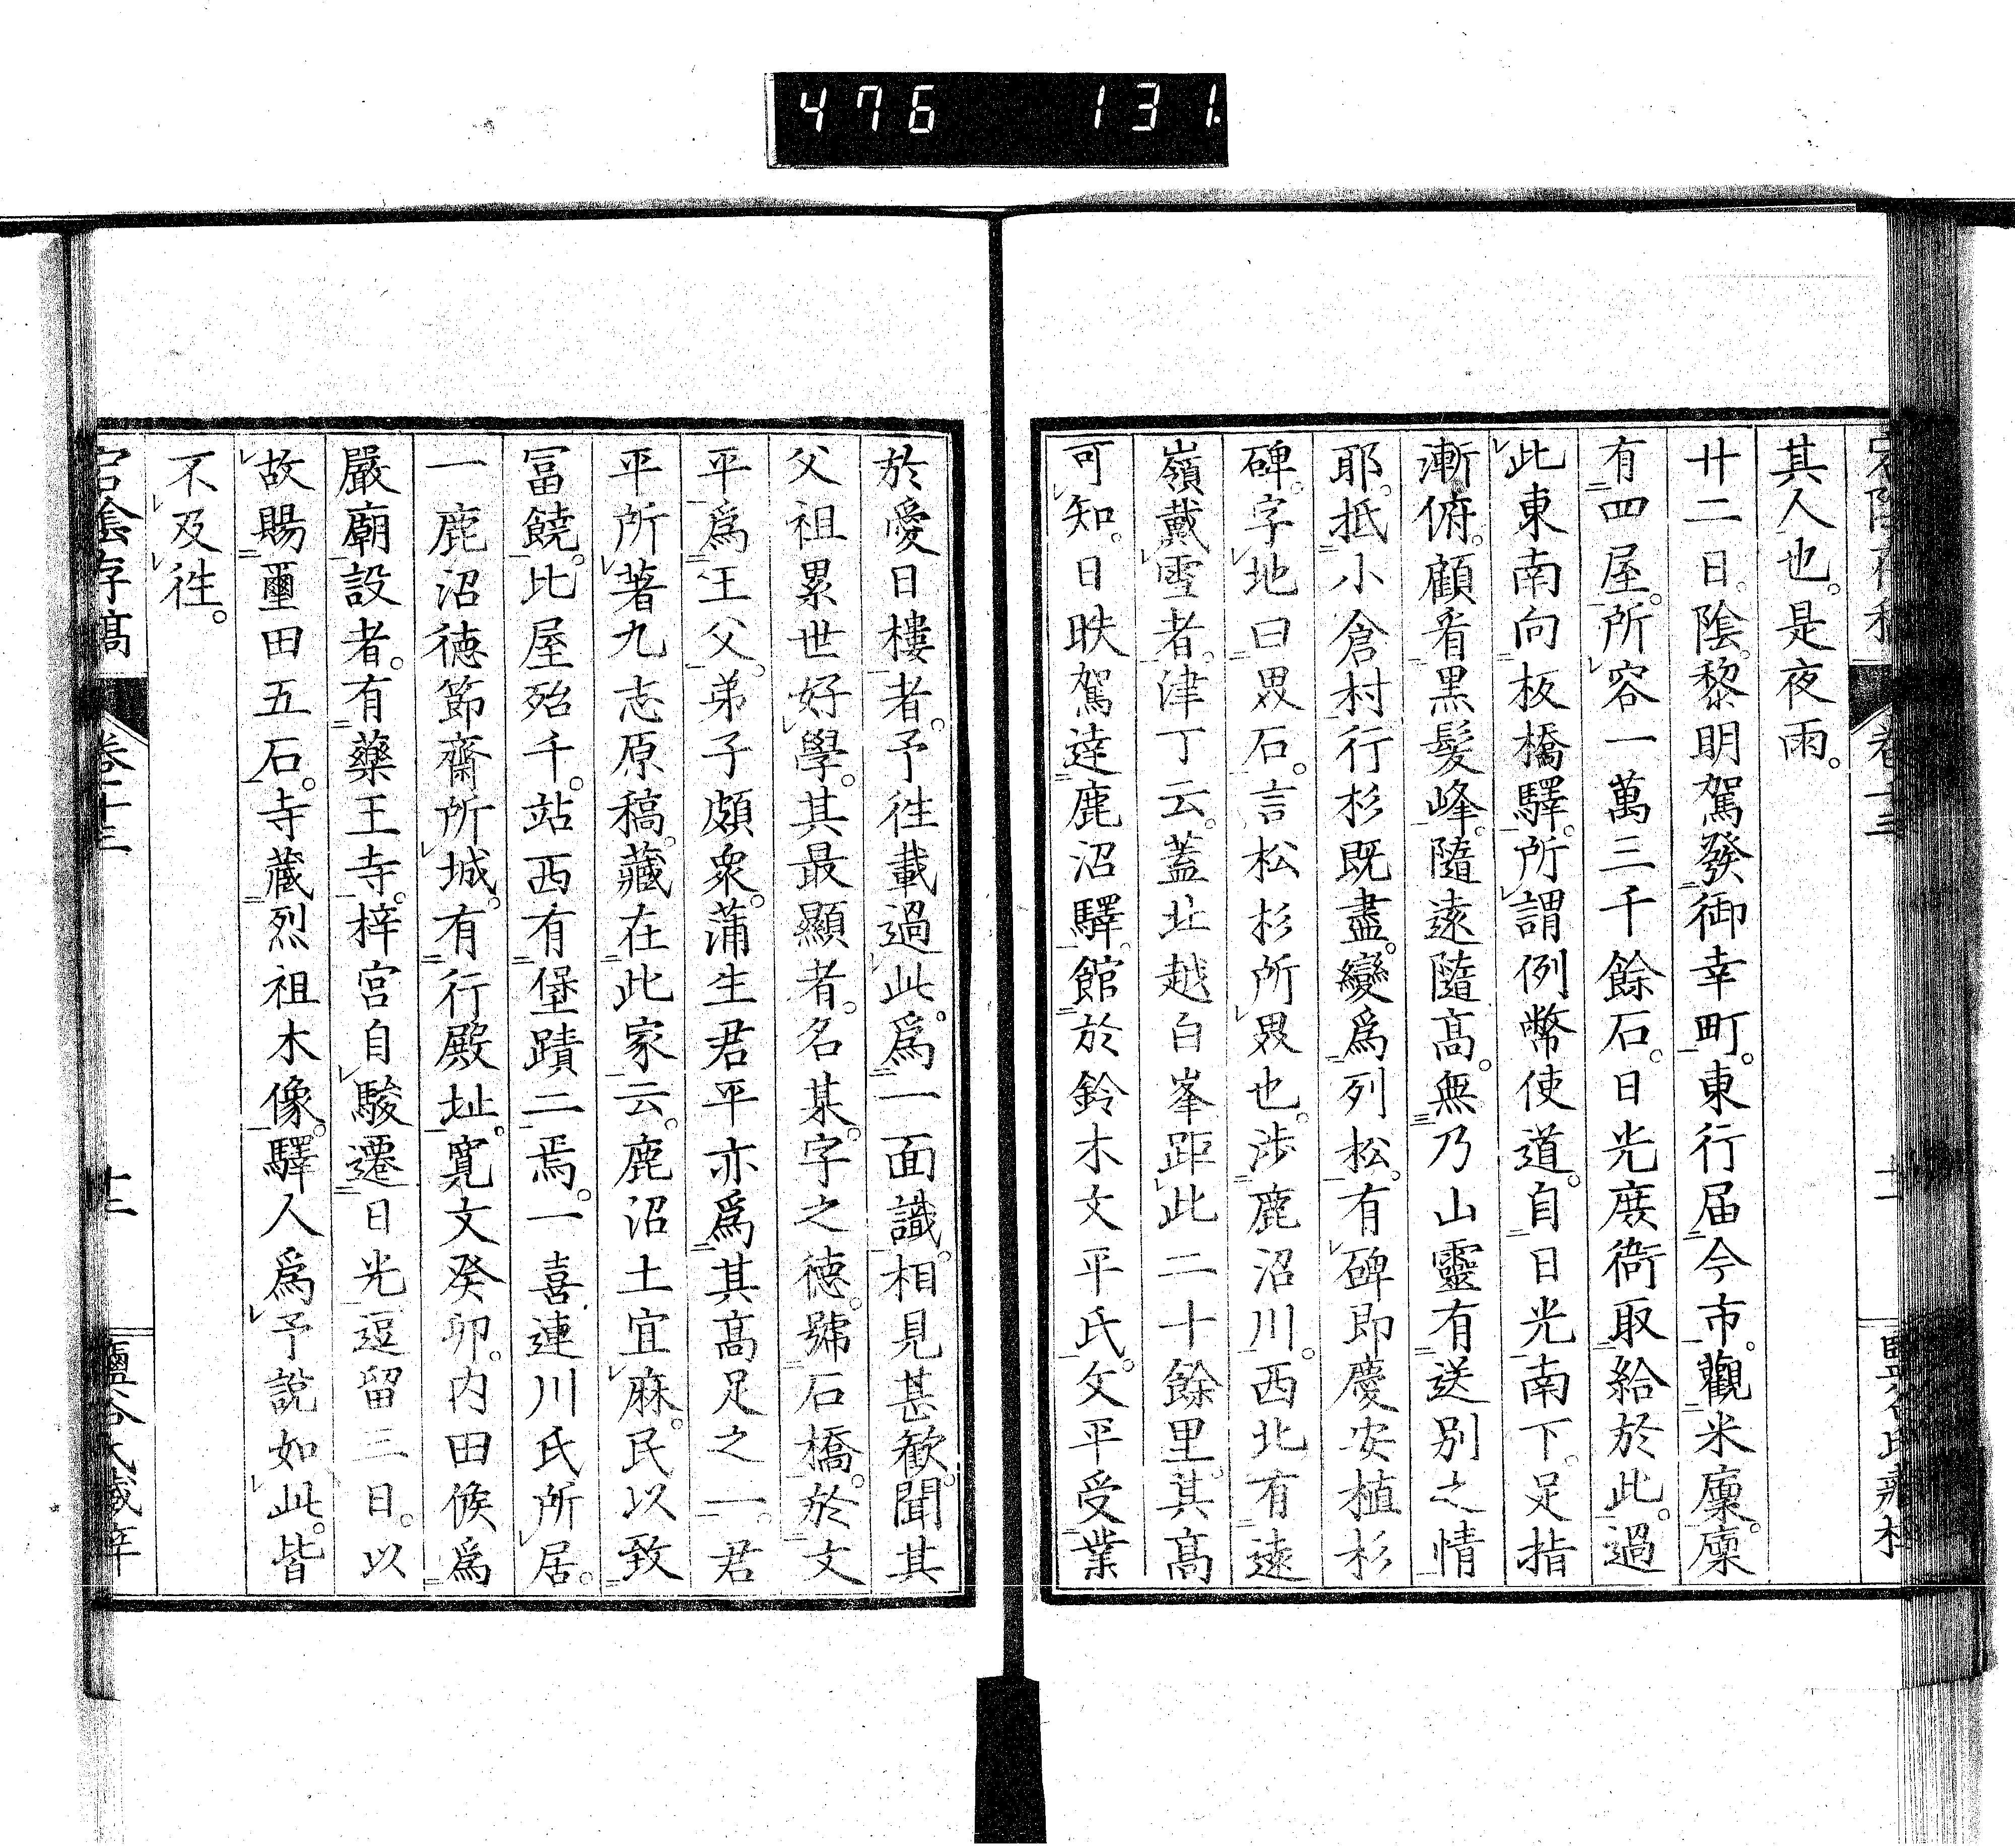 476 131
其人也。是夜雨。
廿二日。陰。黎明駕發御幸町。東行届今市。觀米廩。廩
有四屋。所容一萬三千餘石。日光廣衙取給於此。過
此東南向板橋驛。所謂例幣使道。自日光南下。足指
漸俯。顧看黑髮峰。隨遠隨高。無乃山靈有送別之情
耶。抵小倉村。行杉既盡。變爲列松。有碑即慶安植杉
碑。字地曰畟石。言松杉所畟也。涉鹿沼川。西北有遠
嶺戴雪者。津丁云。蓋北越白峯。距此二十餘里。其高
可知。日昳駕達鹿沼驛。館於鈴木文平氏。文平受業
於愛日樓者。予徃載過此。爲一面識。相見甚歡。聞其
父祖累世好學。其最顯者。名某。字之德。號石橋。於文
平爲王父。弟子頗衆。蒲生君平亦爲其高足之一。君
平所著九志原稿。藏在此家云。鹿沼土宜麻。民以致
冨饒。比屋殆千。站西有堡蹟二焉。一喜連川氏所居。
一鹿沼德節齋所城。有行殿址。寬文癸卯。内田候爲
嚴廟設者。有藥王寺。梓宮自駿遷日光逗留三日。以
故賜璽田五石。寺藏烈祖木像。驛人爲予說如此。皆
不及徃。
宕陰存稿 卷十三 十二